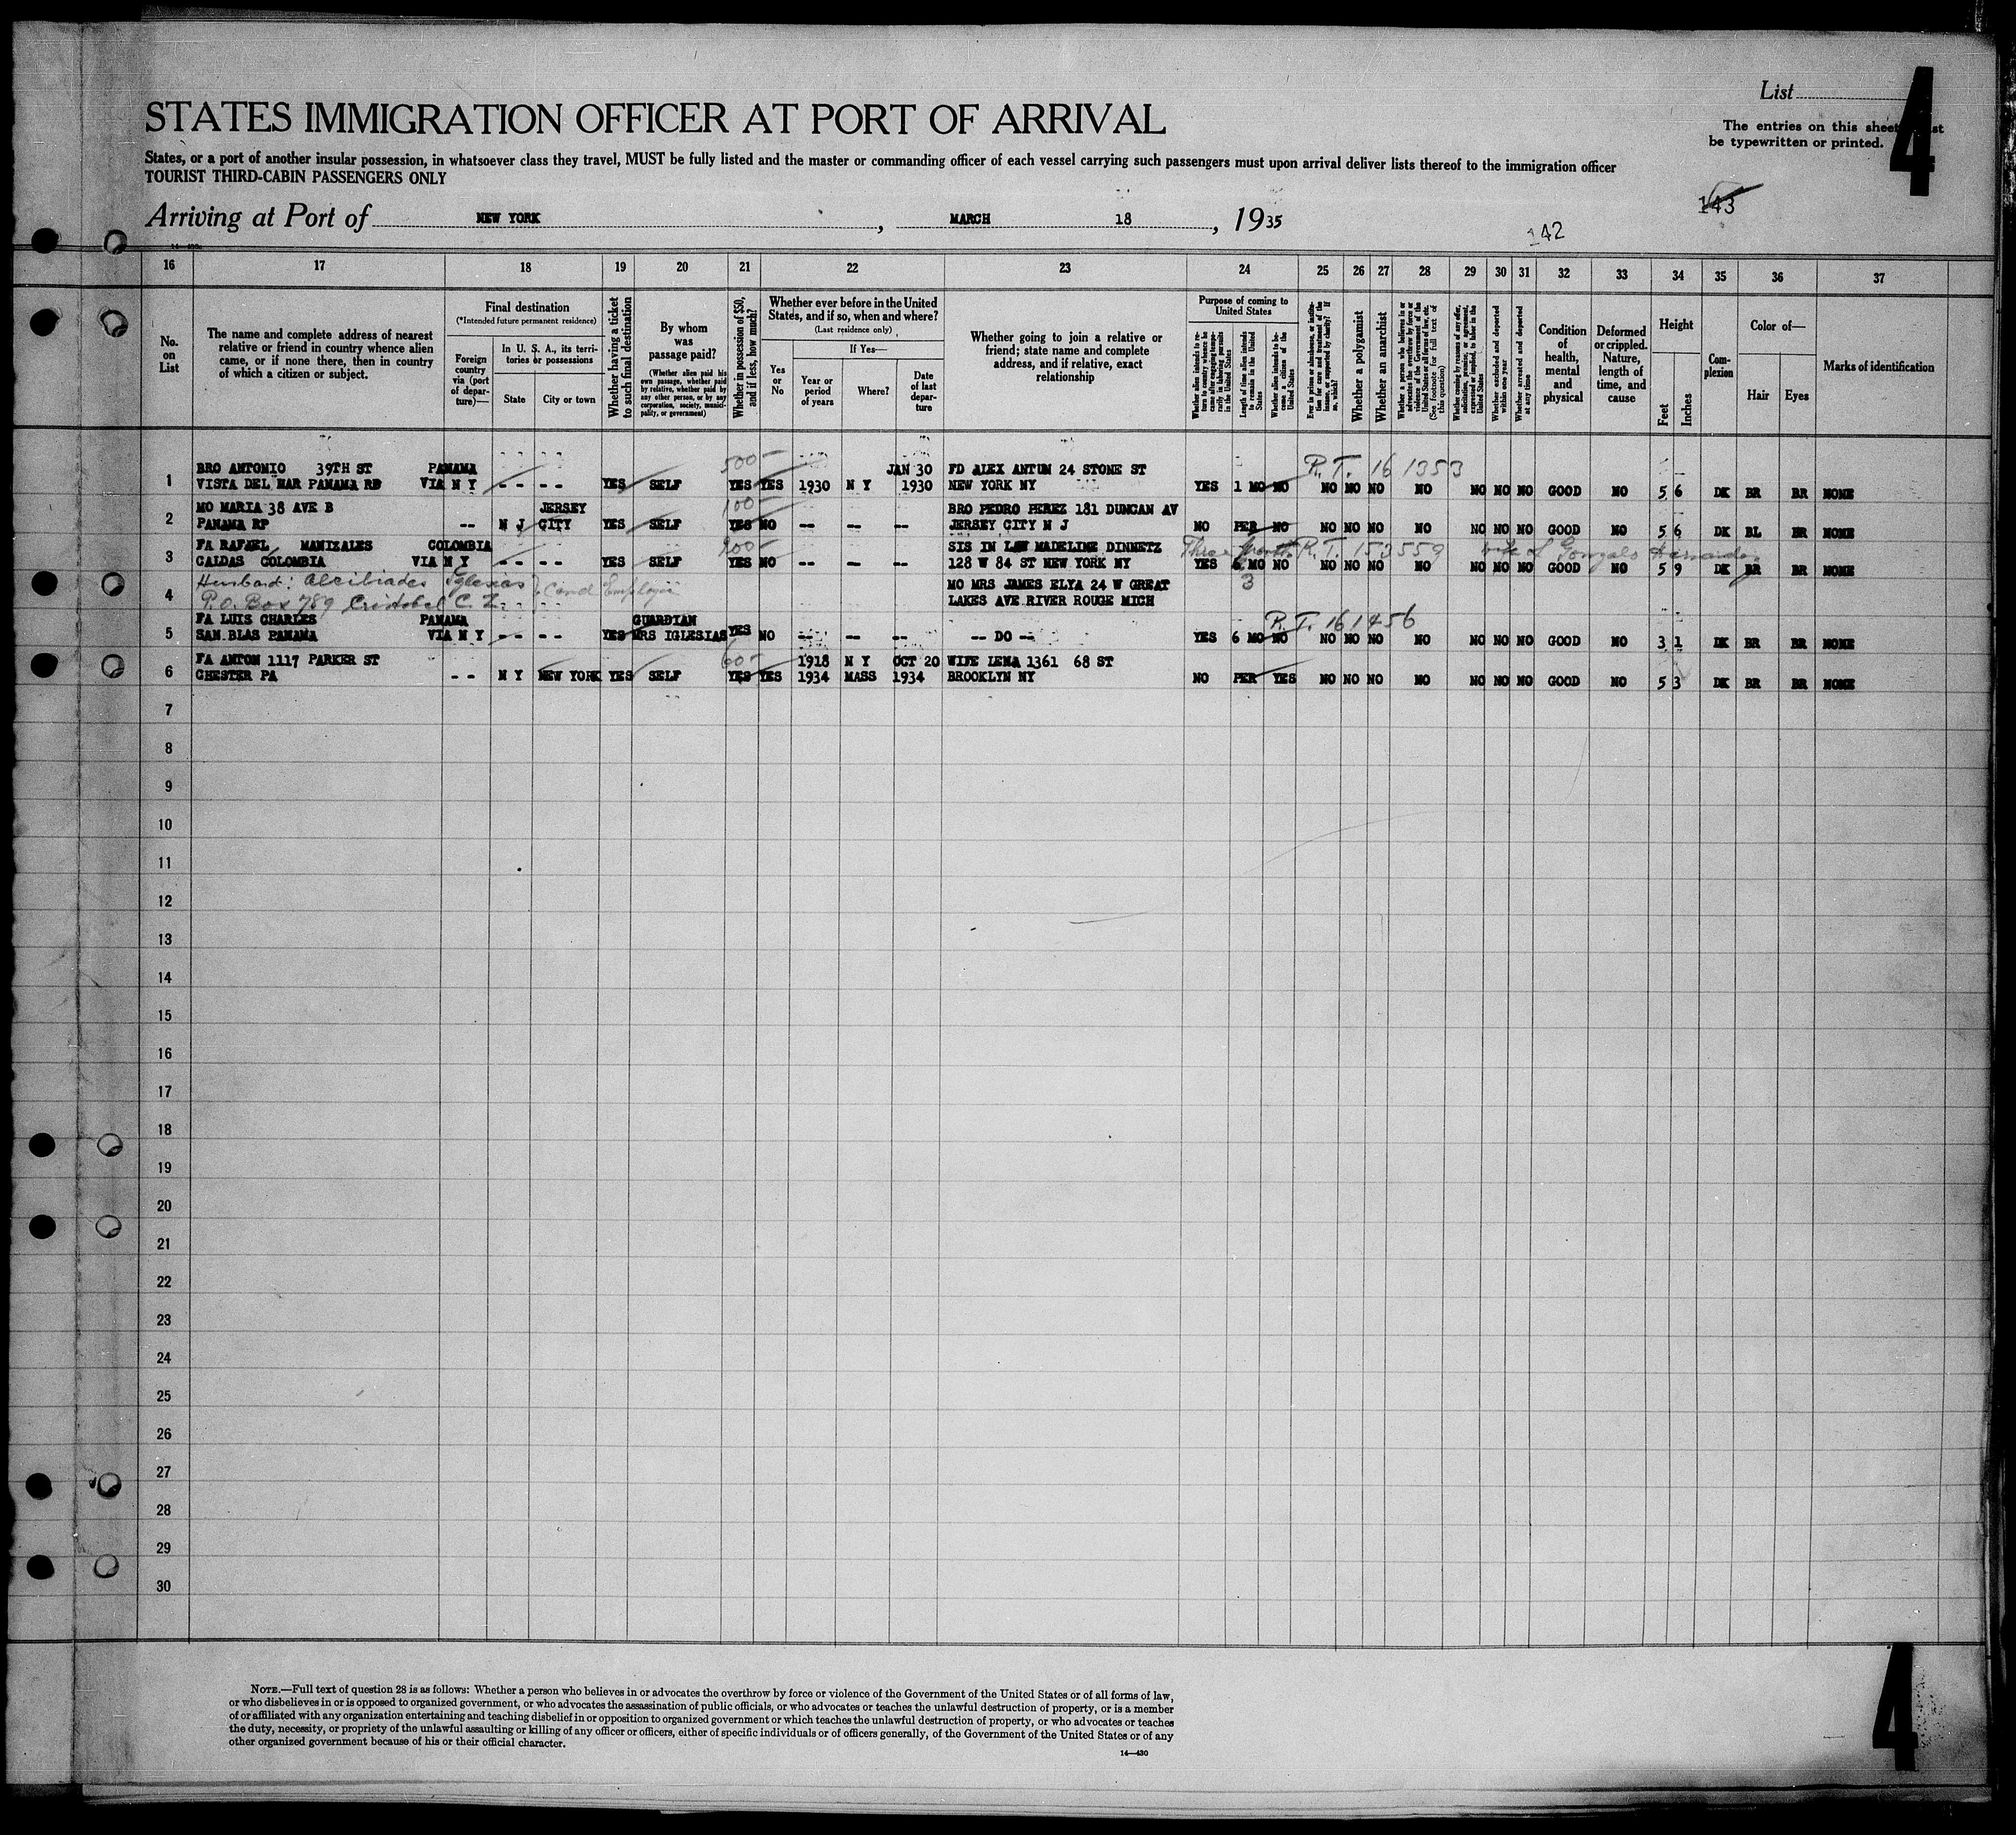 List
4
STATES IMMIGRATION OFFICER AT PORT OF ARRIVAL
The entries on this sheet
be typewritten or printed.
States, or a port of another insular possession, in whatsoever class they travel, MUST be fully listed and the master or commanding officer of each vessel carrying such passengers must upon arrival deliver lists thereof to the immigration officer
TOURIST THIRD-CABIN PASSENGERS ONLY
143
Arriving at Port of NEW YORK, MARCH 18, 1935
142
16 17 18 19 20 21 22 23 24 25 26 27 28 29 30 31 32 33 34 35 36 37
No. on List
The name and complete address of nearest relative or friend in country whence alien came, or if none there, then in country of which a citizen or subject.
Final destination
(*Intended future permanent residence)
Foreign country via (port of departure)—
In U. S. A., its territories or possessions
State
City or town
Whether having a ticket to such final destination
By whom was passage paid?
(Whether alien paid his own passage, whether paid by relative, whether paid by any other person, or by any corporation, society, municipality, or government)
Whether in possession of $50, and if less, how much?
Whether ever before in the United States, and if so, when and where?
(Last residence only)
Yes or No
If Yes—
Year or period of years
Where?
Date of last departure
Whether going to join a relative or friend; state name and complete address, and if relative, exact relationship
Purpose of coming to United States
Whether alien intends to return to country whence he came after engaging temporarily in laboring pursuits in the United States
Length of time alien intends to remain in the United States
Whether alien intends to become a citizen of the United States
Ever in prison or almshouse, or institution for care and treatment of the insane, or supported by charity? If so, which?
Whether a polygamist
Whether an anarchist
Whether a person who believes in or advocates the overthrow by force or violence of the Government of the United States or all forms of law, etc. (See footnote for full text of this question)
Whether coming by reason of any offer, solicitation, promise, or agreement, expressed or implied, to labor in the United States
Whether excluded and deported within one year
Whether arrested and deported at any time
Condition of health, mental and physical
Deformed or crippled. Nature, length of time, and cause
Height
Feet
Inches
Complexion
Color of—
Hair
Eyes
Marks of identification
500- R.T. 161353
BRO ANTONIO 39TH ST PANAMA JAN 30 FD ALEX ANTUN 24 STONE ST
1 VISTA DEL MAR PANAMA RP VIA N Y - - - - YES SELF YES YES 1930 N Y 1930 NEW YORK NY YES 1 MO NO NO NO NO NO NO NO NO GOOD NO 5 6 DK BR BR NONE
100-
MO MARIA 38 AVE B JERSEY BRO PEDRO PEREZ 181 DUNCAN AV
2 PANAMA RP -- N J CITY YES SELF YES NO -- -- -- JERSEY CITY N J NO PER NO NO NO NO NO NO NO NO GOOD NO 5 6 DK BL BR NONE
FA RAFAEL MANIZALES COLOMBIA SIS IN LAW MADELINE DINNETZ Three Months R.T. 153559 wife of Gonzalo
3 CALDAS COLOMBIA VIA N Y - - - - YES SELF YES NO -- -- -- 128 W 84 ST NEW YORK NY YES MO NO NO NO NO NO NO NO NO GOOD NO 5 9 DK BR BR NONE
3
Husband: Alcibiades Iglesias MO MRS JAMES ELYA 24 W GREAT
4 P.O. Box 789 Cristobal C. Z. LAKES AVE RIVER ROUGE MICH
FA LUIS CHARLES PANAMA GUARDIAN R.T. 161456
5 SAN BLAS PANAMA VIA N Y - - - - YES MRS IGLESIAS YES NO -- -- -- -- DO -- YES 6 MO NO NO NO NO NO NO NO NO GOOD NO 3 1 DK BR BR NONE
60-
FA ANTON 1117 PARKER ST 1918 N Y OCT 20 WIFE LENA 1361 68 ST
6 CHESTER PA - - N Y NEW YORK YES SELF YES YES 1934 MASS 1934 BROOKLYN NY NO PER YES NO NO NO NO NO NO NO GOOD NO 5 3 DK BR BR NONE
7
8
9
10
11
12
13
14
15
16
17
18
19
20
21
22
23
24
25
26
27
28
29
30
NOTE.—Full text of question 28 is as follows: Whether a person who believes in or advocates the overthrow by force or violence of the Government of the United States or of all forms of law,
or who disbelieves in or is opposed to organized government, or who advocates the assassination of public officials, or who advocates or teaches the unlawful destruction of property, or is a member
of or affiliated with any organization entertaining and teaching disbelief in or opposition to organized government or which teaches the unlawful destruction of property, or who advocates or teaches
the duty, necessity, or propriety of the unlawful assaulting or killing of any officer or officers, either of specific individuals or of officers generally, of the Government of the United States or of any
other organized government because of his or their official character.
14—430
4